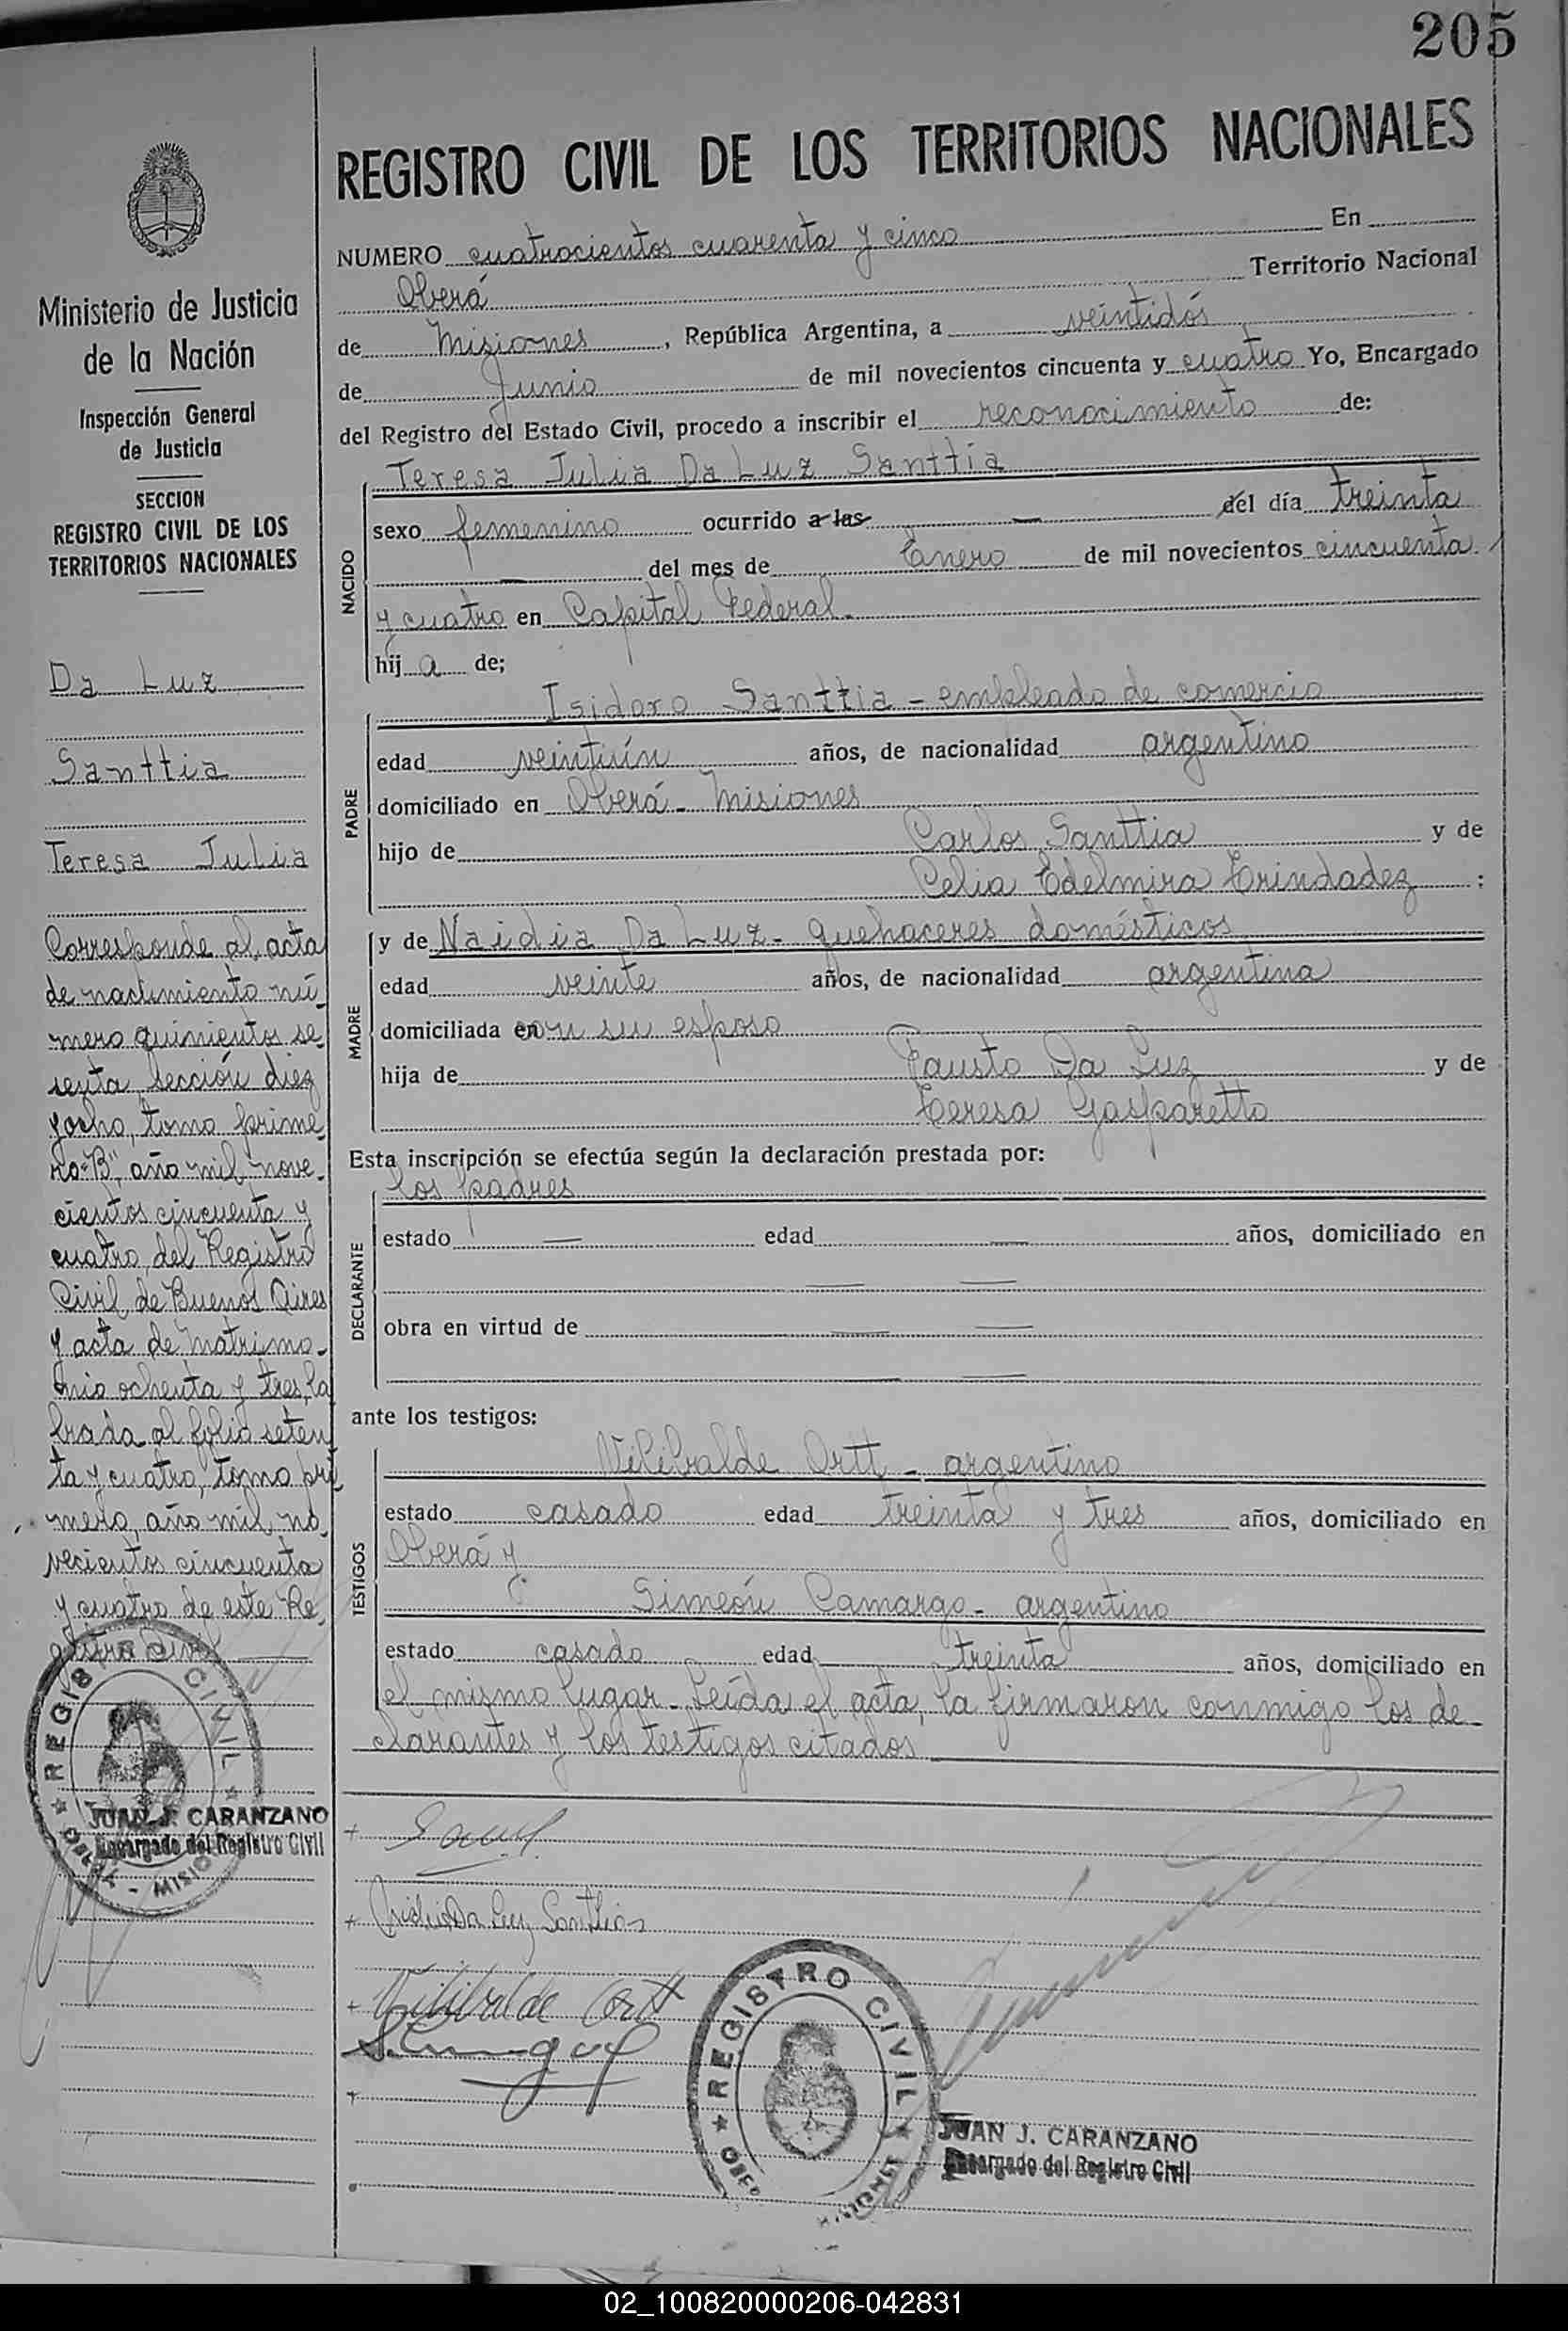 205
REGISTRO CIVIL DE LOS TERRITORIOS NACIONALES
NUMERO cuatrocientos cuarenta y cinco En
Oberá Territorio Nacional
de Misiones, República Argentina, a veintidós
de Junio de mil novecientos cincuenta y cuatro Yo, Encargado
del Registro del Estado Civil, procedo a inscribir el reconocimiento de:
Teresa Julia Da Luz Santtia
NACIDO
sexo femenino ocurrido a las — del día treinta
— del mes de Enero de mil novecientos cincuenta
y cuatro en Capital Federal.
hija de;
PADRE
Isidoro Santtia - empleado de comercio
edad veintiún años, de nacionalidad argentino
domiciliado en Oberá - Misiones
hijo de Carlos Santtia y de
Celia Edelmira Trindadez :
MADRE
y de Naidia Da Luz - quehaceres domésticos
edad veinte años, de nacionalidad argentina
domiciliada en con su esposo
hija de Fausto Da Luz y de
Teresa Gasparetto
Esta inscripción se efectúa según la declaración prestada por:
DECLARANTE
los padres
estado — edad — años, domiciliado en
— —
obra en virtud de — —
— —
ante los testigos:
TESTIGOS
Vilibalde Ortt - argentino
estado casado edad treinta y tres años, domiciliado en
Oberá y
Simeón Camargo - argentino
estado casado edad treinta años, domiciliado en
el mismo lugar - Leída el acta, la firmaron conmigo los de-
clarantes y los testigos citados
Da Luz Santtia
Vilibalde Ortt
REGISTRO CIVIL
JUAN J. CARANZANO
Encargado del Registro Civil
Ministerio de Justicia
de la Nación
Inspección General
de Justicia
SECCION
REGISTRO CIVIL DE LOS
TERRITORIOS NACIONALES
Da Luz
Santtia
Teresa Julia
Corresponde al acta
de nacimiento nú-
mero quinientos se-
senta, sección diez
y ocho, tomo prime-
ro "B", año mil nove-
cientos cincuenta y
cuatro, del Registro
Civil de Buenos Aires
y acta de matrimo-
nio ochenta y tres, la
brada al folio seten
ta y cuatro, tomo pri
mero, año mil no-
vecientos cincuenta
y cuatro de este Re-
gistro Civil
REGISTRO CIVIL
OBERA - MISIONES
JUAN J. CARANZANO
Encargado del Registro Civil
02_100820000206-042831